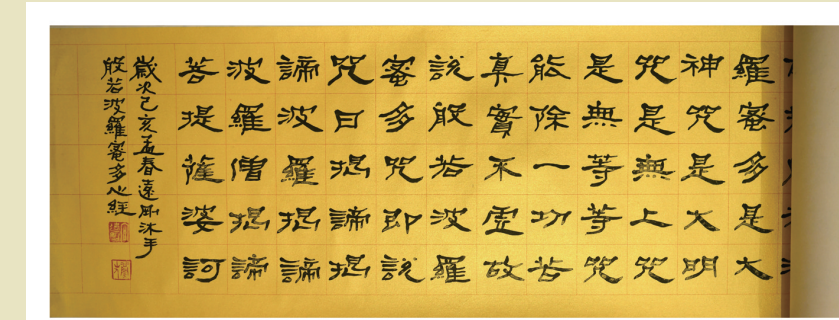 羅蜜多是大
神咒是大明
咒是無上咒
是無等等咒
能除一切苦
真實不虛故
說般若波羅
蜜多咒即說
咒曰揭諦揭
諦波羅揭諦
波羅僧揭諦
菩提薩婆訶
歲次己亥孟春遠剛沐手
般若波羅蜜多心經